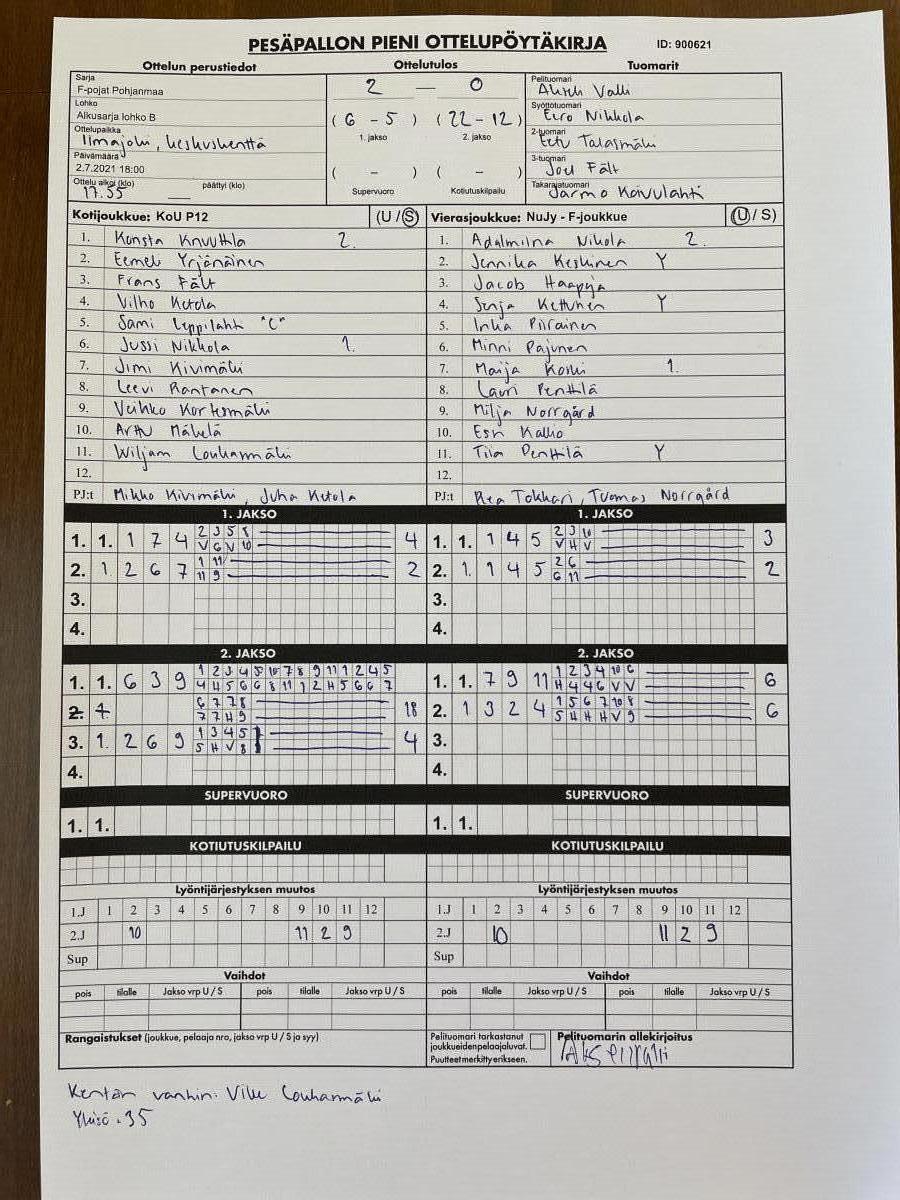 PESÄPALLON PIENI OTTELUPÖYTÄKIRJA ID: 900621
Ottelun perustiedot Ottelutulos Tuomarit
Sarja
F-pojat Pohjanmaa
Lohko
Alkusarja lohko B
Ottelupaikka
Ilmajoki, keskuskenttä
Päivämäärä
2.7.2021 18:00
Ottelu alkoi (klo) päättyi (klo)
17.55
2 — 0
(6 - 5) (22 - 12)
1. jakso 2. jakso
( - ) ( - )
Supervuoro Kotiutuskilpailu
Pelituomari
Valli
Syöttötuomari
Eero Nikkola
2-tuomari
Eetu Talasmäki
3-tuomari
Joel Fält
Takarajatuomari
Jarmo Koivulahti
Kotijoukkue: KoU P12 (U / S)
1. Konsta Knuuttila 2.
2. Eemeli Yrjänäinen
3. Frans Fält
4. Vilho Ketola
5. Sami Leppilahti "C"
6. Jussi Nikkola 1.
7. Jimi Kivimäki
8. Leevi Rantanen
9. Veikko Kortesmäki
10. Arttu Mäkelä
11. Wiljam Louhanmäki
12.
PJ:t Mikko Kivimäki, Juha Ketola
Vierasjoukkue: NuJy - F-joukkue (U / S)
1. Nikola 2.
2. Jennika Keskinen Y
3. Jacob Haapoja
4. Senja Kettunen Y
5. Inka Piirainen
6. Minni Pajunen
7. Maija Koski 1.
8. Lauri Penttilä
9. Milja Norrgård
10. Esri Kallio
11. Tiia Penttilä Y
12.
PJ:t Rea Tokkari, Tuomas Norrgård
1. JAKSO
1. 1. 1 7 4 2 3 5 8 4
V 6 V 10
2. 1 2 6 7 1 11 2
11 9
3.
4.
1. JAKSO
1. 1. 1 4 5 2 3 10 3
V H V
2. 1. 1 4 5 2 6 2
6 11
3.
4.
2. JAKSO
1. 1. 6 3 9 1 2 3 4 5 10 7 8 9 11 1 2 4 5
4 H 5 6 6 8 11 1 2 H 5 6 6 7
2. 1. 6 7 7 8 18
7 7 H 9
3. 1. 2 6 9 1 3 4 5 4
5 H V 8
4.
2. JAKSO
1. 1. 7 9 11 1 2 3 4 10 6 6
H 4 4 6 V V
2. 1 3 2 4 1 5 6 7 10 8 6
5 H H H V 9
3.
4.
SUPERVUORO SUPERVUORO
1. 1. 1. 1.
KOTIUTUSKILPAILU KOTIUTUSKILPAILU
Lyöntijärjestyksen muutos Lyöntijärjestyksen muutos
1.J 1 2 3 4 5 6 7 8 9 10 11 12 1.J 1 2 3 4 5 6 7 8 9 10 11 12
2.J 10 11 2 9 2.J 10 11 2 9
Sup Sup
Vaihdot Vaihdot
pois tilalle Jakso vrp U / S pois tilalle Jakso vrp U / S pois tilalle Jakso vrp U / S pois tilalle Jakso vrp U / S
Rangaistukset (joukkue, pelaaja nro, jakso vrp U / S ja syy)
Pelituomari tarkastanut
joukkueiden pelaajaluvat.
Puutteet merkitty erikseen.
Pelituomarin allekirjoitus
Kentän vanhin: Ville Louhanmäki
Yleisö: 35